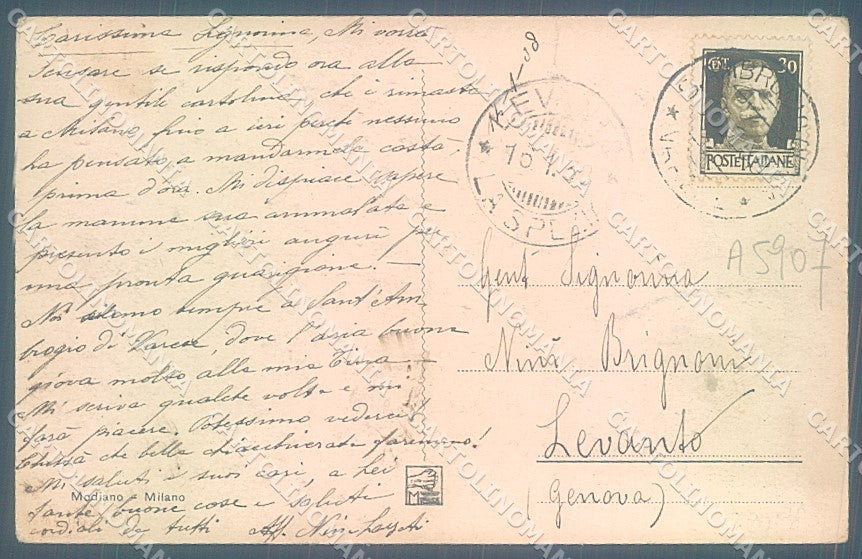 Carissima Signorina, Mi vorrà
scusare se rispondo ora alla
sua gentile cartolina, che è rimasta
a Milano fino a ieri perché nessuno
ha pensato a mandarmela costà,
prima d'ora. Mi dispiace sapere
la mamma sua ammalata e
presento i migliori auguri per
una pronta guarigione. —
Noi siamo sempre a Sant'Am-
brogio di Varese, dove l'aria buona
giova molto alla mia
Mi scriva qualche volta e mi
farà piacere. Potessimo vederci!
Chissà che bella chiacchierata faremmo!
Mi saluti i suoi cari, a Lei
tante buone cose e saluti
cordiali da tutti Aff.
Modiano Milano
CENT 30
POSTE ITALIANE
LA SPEZIA
A5907
Gent. Signorina
Brignoni
Levanto
(Genova)
CARTOLINOMANIA